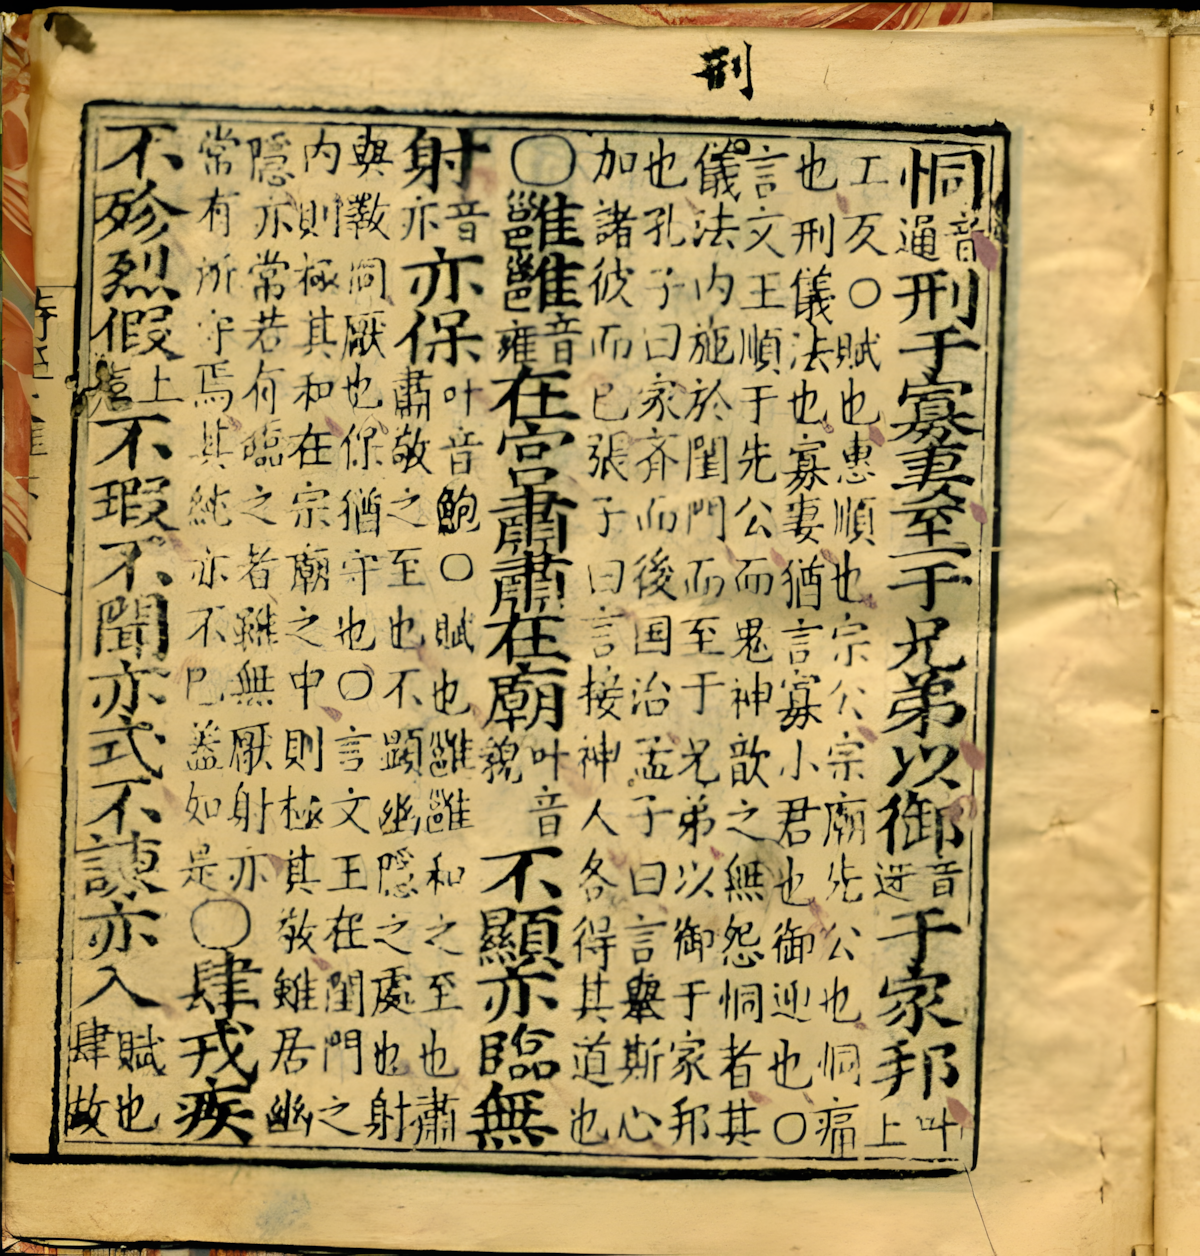 刑
恫音通刑于寡妻至于兄弟以御音迓于家邦叶上
工反○賦也惠順也宗公宗廟先公也恫痛
也刑儀法也寡妻猶言寡小君也御迎也○
言文王順于先公而鬼神歆之無怨恫者其
儀法内施於閨門而至于兄弟以御于家邦
也孔子曰家齐而後国治孟子曰言舉斯心
加諸彼而已張子曰言接神人各得其道也
○雝雝音雍在宮肅肅在廟叶音貌不顯亦臨無
射音亦亦保叶音鮑○賦也雝雝和之至也肅
肅敬之至也不顯幽隱之處也射
與斁同厭也保猶守也○言文王在閨門之
内則極其和在宗廟之中則極其敬雖居幽
隱亦常若有臨之者雖無厭射亦
常有所守焉其純亦不已蓋如是○肆戎疾
不殄烈假上不瑕不聞亦式不諫亦入賦也肆故